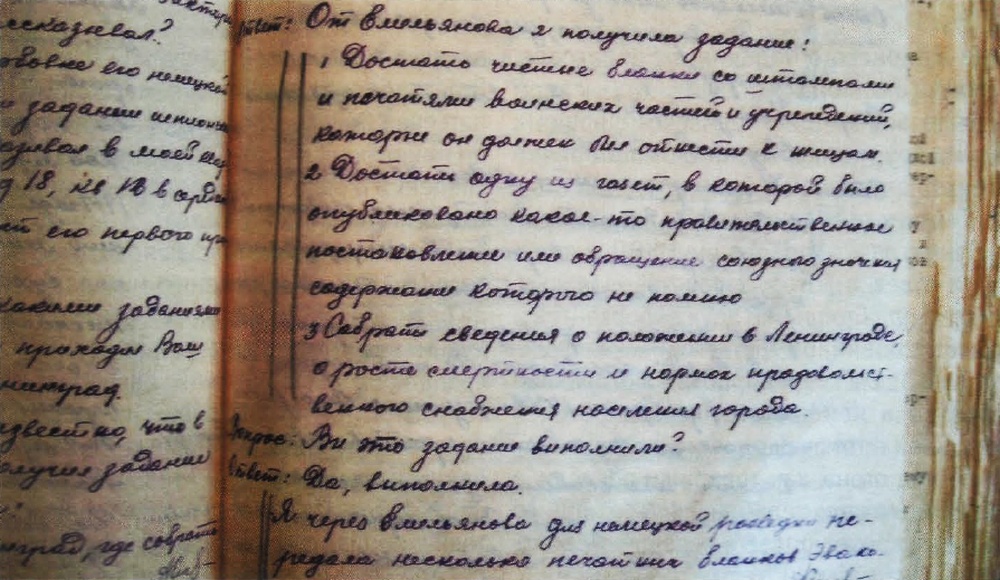 ссказывал?
его немецкой
задании
в моей
18, кв 18 в
его первого
какими заданиями
приходил Ваш
нинград.
известно, что в
олучил задание
град, где собрать
Ответ: От Емельянова я получила задание:
1 Достать чистые бланки со штампами
и печатями воинских частей и учреждений,
которые он должен был отнести к немцам.
2 Достать одну из газет, в которой было
опубликовано какое-то правительственное
постановление или обращение союзного значения
содержание которого не помню
3 Собрать сведения о положении в Ленинграде,
о росте смертности и нормах продовольст-
венного снабжения населения города.
Вопрос: Вы это задание выполнили?
Ответ: Да, выполнила.
Я через Емельянова для немецкой разведки пе-
редала несколько печатных бланков Эвако-